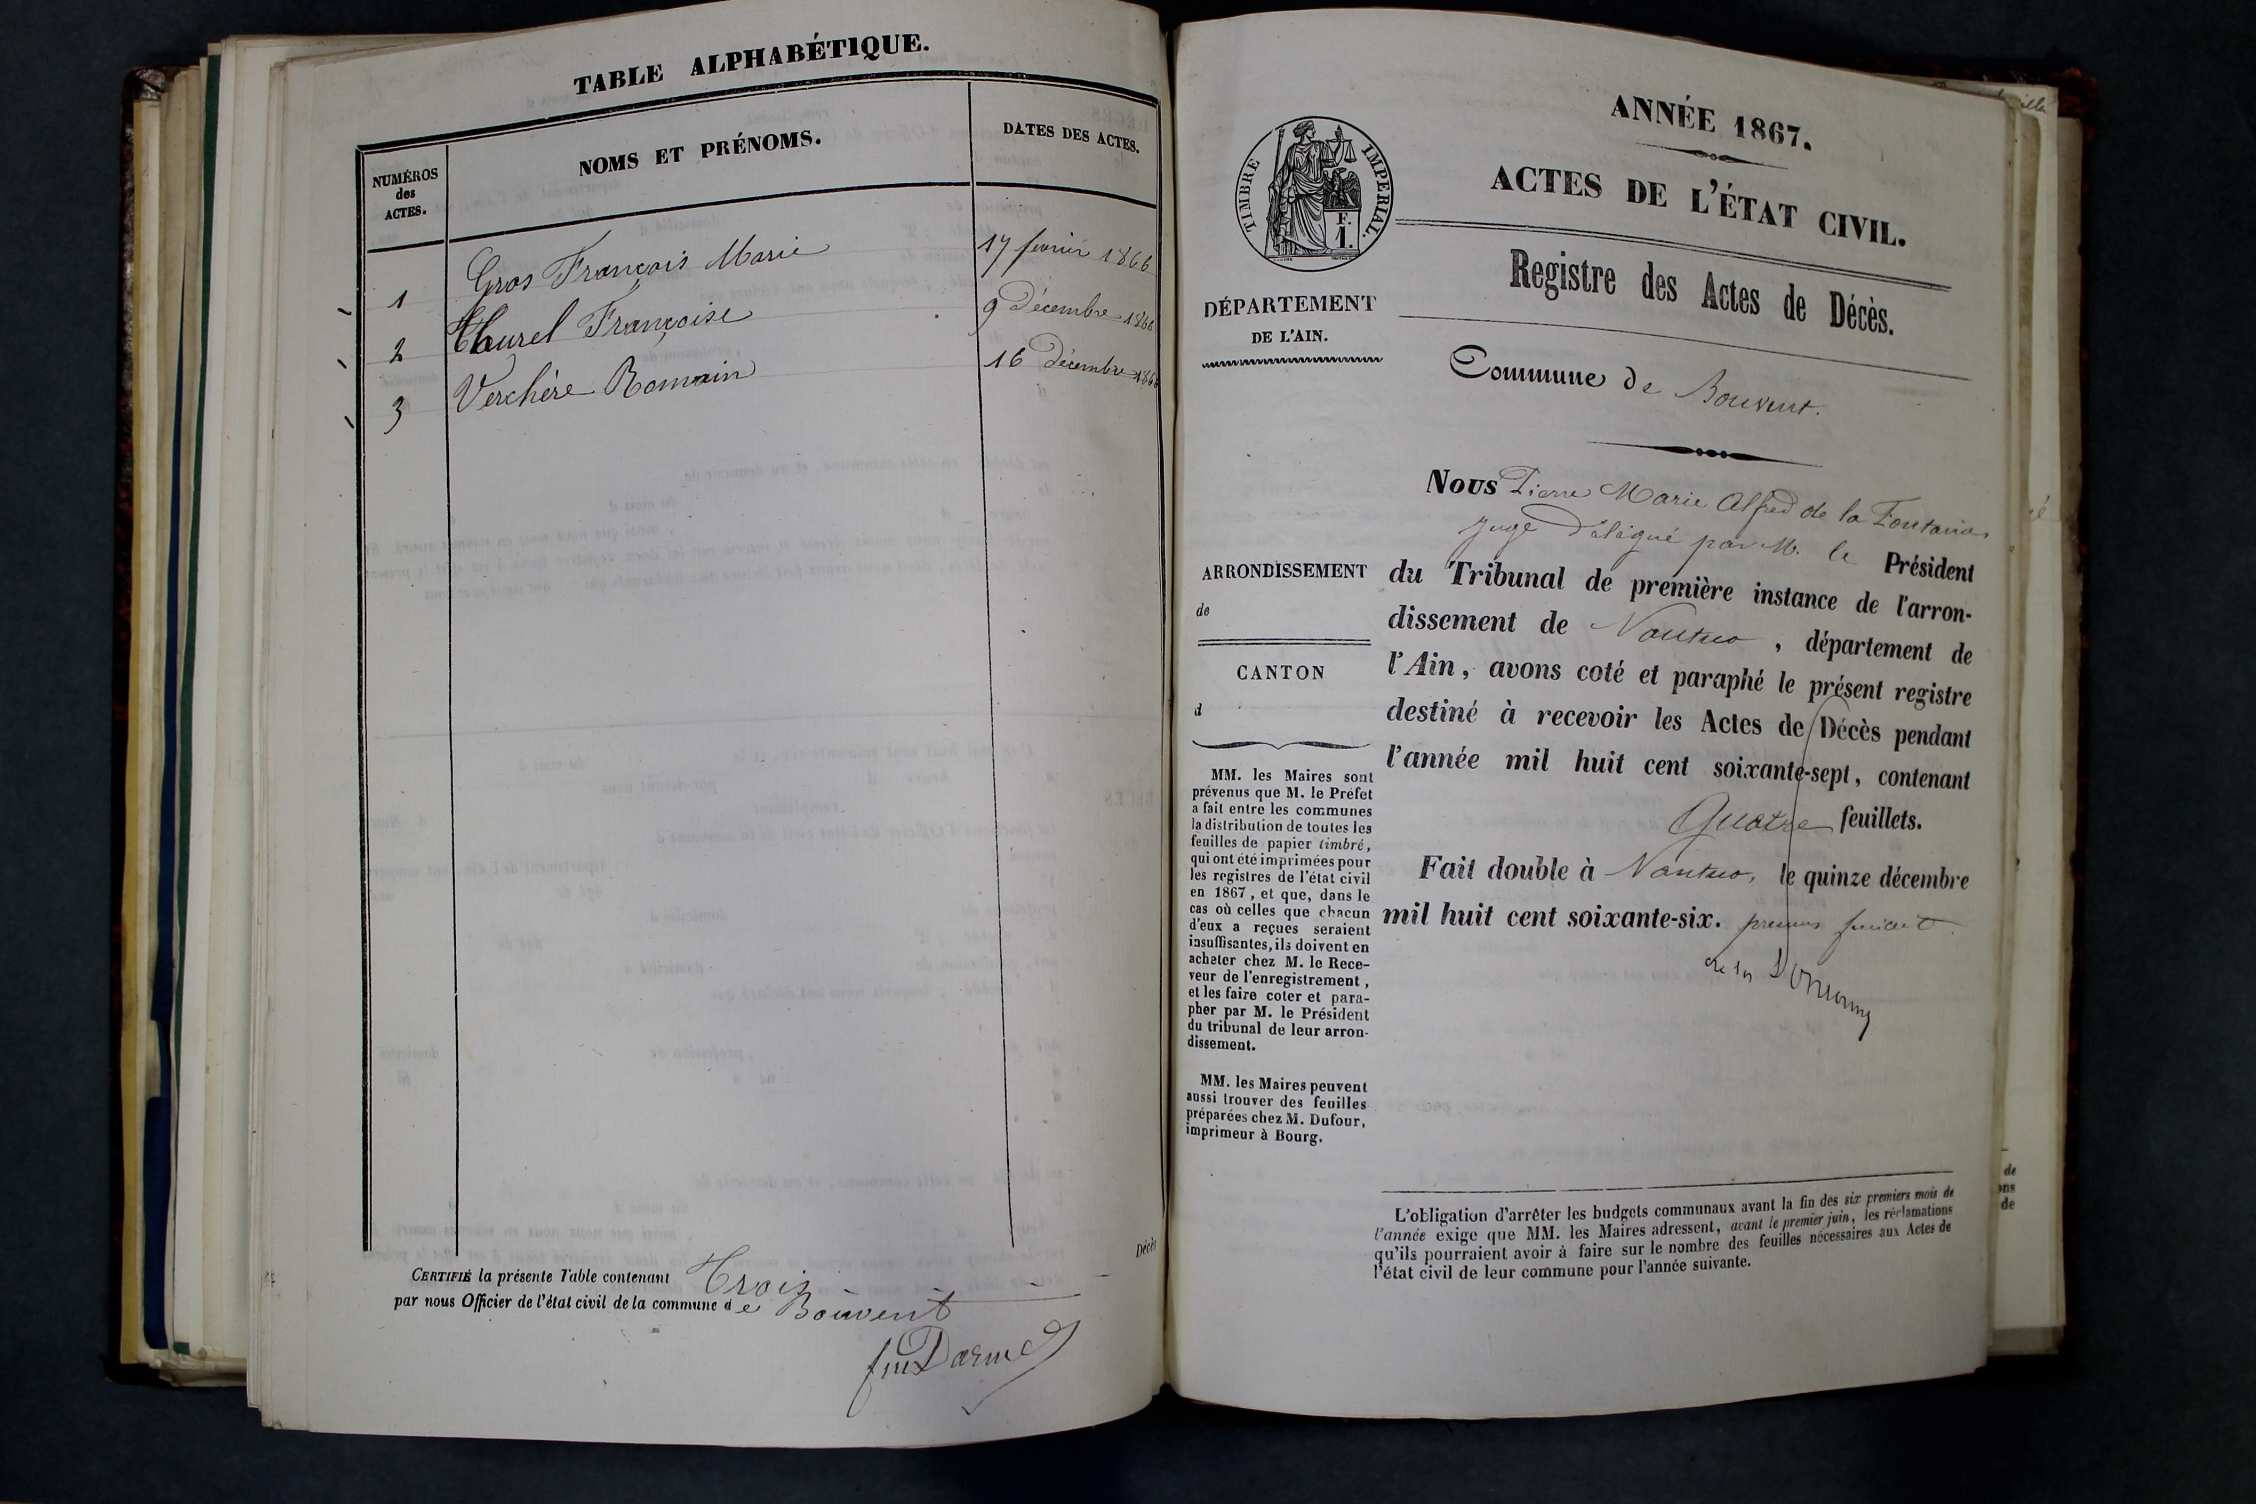 TABLE ALPHABÉTIQUE.
NUMÉROS
des
ACTES.
NOMS ET PRÉNOMS.
DATES DES ACTES.
1 Gros François Marie 17 fevrier 1866
2 Thurel Françoise 9 Décembre 1866
3 Verchère Romain 16 Décembre 1866
Décès
CERTIFIÉ la présente Table contenant Trois
par nous Officier de l'état civil de la commune de Bouvent
ANNÉE 1867.
ACTES DE L'ÉTAT CIVIL.
TIMBRE IMPERIAL.
F.
1.
Registre des Actes de Décès.
DÉPARTEMENT
DE L'AIN.
Commune de Bouvent.
Nous Pierre Marie Alfred de la
juge Délégué par M. le Président
du Tribunal de première instance de l'arron-
dissement de Nantua, département de
l'Ain, avons coté et paraphé le présent registre
destiné à recevoir les Actes de Décès pendant
l'année mil huit cent soixante-sept, contenant
Quatre feuillets.
Fait double à Nantua, le quinze décembre
mil huit cent soixante-six. premier feuillet
ARRONDISSEMENT
de
CANTON
d
MM. les Maires sont
prévenus que M. le Préfet
a fait entre les communes
la distribution de toutes les
feuilles de papier timbré,
qui ont été imprimées pour
les registres de l'état civil
en 1867, et que, dans le
cas où celles que chacun
d'eux a reçues seraient
insuffisantes, ils doivent en
acheter chez M. le Rece-
veur de l'enregistrement,
et les faire coter et para-
pher par M. le Président
du tribunal de leur arron-
dissement.
MM. les Maires peuvent
aussi trouver des feuilles
préparées chez M. Dufour,
imprimeur à Bourg.
L'obligation d'arrêter les budgets communaux avant la fin des six premiers mois de
l'année exige que MM. les Maires adressent, avant le premier juin, les réclamations
qu'ils pourraient avoir à faire sur le nombre des feuilles nécessaires aux Actes de
l'état civil de leur commune pour l'année suivante.